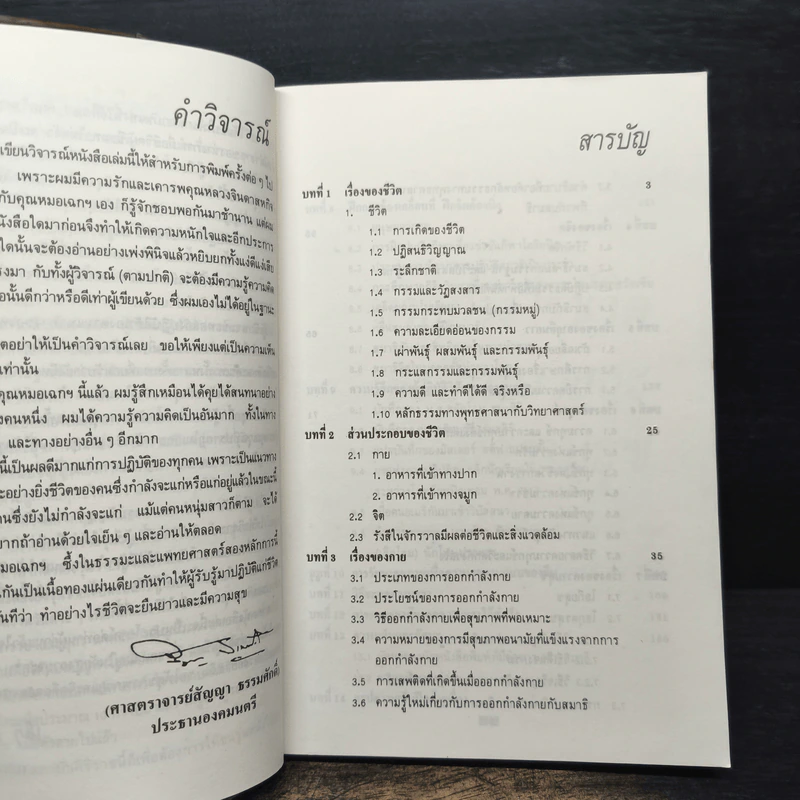 คำวิจารณ์
เขียนวิจารณ์หนังสือเล่มนี้ให้สำหรับการพิมพ์ครั้งต่อ ๆ ไป
เพราะผมมีความรักและเคารพคุณหลวงจินดาสหกิจ
กับคุณหมอเฉกฯ เอง ก็รู้จักชอบพอกันมาช้านาน แต่ผม
หนังสือใดมาก่อนจึงทำให้เกิดความหนักใจและอีกประการ
ใดนั้นจะต้องอ่านอย่างเพ่งพินิจแล้วหยิบยกทั้งแง่ดีแง่เสีย
รงมา กับทั้งผู้วิจารณ์ (ตามปกติ) จะต้องมีความรู้ความคิด
อนั้นดีกว่าหรือดีเท่าผู้เขียนด้วย ซึ่งผมเองไม่ได้อยู่ในฐานะ
ตอย่าให้เป็นคำวิจารณ์เลย ขอให้เพียงแต่เป็นความเห็น
เท่านั้น
คุณหมอเฉกฯ นี้แล้ว ผมรู้สึกเหมือนได้คุยได้สนทนาอย่าง
งคนหนึ่ง ผมได้ความรู้ความคิดเป็นอันมาก ทั้งในทาง
และทางอย่างอื่น ๆ อีกมาก
นี้เป็นผลดีมากแก่การปฏิบัติของทุกคน เพราะเป็นแนวทาง
ะอย่างยิ่งชีวิตของคนซึ่งกำลังจะแก่หรือแก่อยู่แล้วในขณะนี้
านซึ่งยังไม่กำลังจะแก่ แม้แต่คนหนุ่มสาวก็ตาม จะได้
มากถ้าอ่านด้วยใจเย็น ๆ และอ่านให้ตลอด
หมอเฉกฯ ซึ้งในธรรมะและแพทยศาสตร์สองหลักการนี้
กันเป็นเนื้อทองแผ่นเดียวกันทำให้ผู้รับรู้มาปฏิบัติแก่ชีวิต
ันทีว่า ทำอย่างไรชีวิตจะยืนยาวและมีความสุข
(ศาสตราจารย์สัญญา ธรรมศักดิ์)
ประธานองคมนตรี
สารบัญ
บทที่ 1 เรื่องของชีวิต 3
1. ชีวิต
1.1 การเกิดของชีวิต
1.2 ปฏิสนธิวิญญาณ
1.3 ระลึกชาติ
1.4 กรรมและวัฏสงสาร
1.5 กรรมกระทบมวลชน (กรรมหมู่)
1.6 ความละเอียดอ่อนของกรรม
1.7 เผ่าพันธุ์ ผสมพันธุ์ และกรรมพันธุ์
1.8 กระแสกรรมและกรรมพันธุ์
1.9 ความดี และทำดีได้ดี จริงหรือ
1.10 หลักธรรมทางพุทธศาสนากับวิทยาศาสตร์
บทที่ 2 ส่วนประกอบของชีวิต 25
2.1 กาย
1. อาหารที่เข้าทางปาก
2. อาหารที่เข้าทางจมูก
2.2 จิต
2.3 รังสีในจักรวาลมีผลต่อชีวิตและสิ่งแวดล้อม
บทที่ 3 เรื่องของกาย 35
3.1 ประเภทของการออกกำลังกาย
3.2 ประโยชน์ของการออกกำลังกาย
3.3 วิธีออกกำลังกายเพื่อสุขภาพที่พอเหมาะ
3.4 ความหมายของการมีสุขภาพอนามัยที่แข็งแรงจากการ
ออกกำลังกาย
3.5 การเสพติดที่เกิดขึ้นเมื่อออกกำลังกาย
3.6 ความรู้ใหม่เกี่ยวกับการออกกำลังกายกับสมาธิ